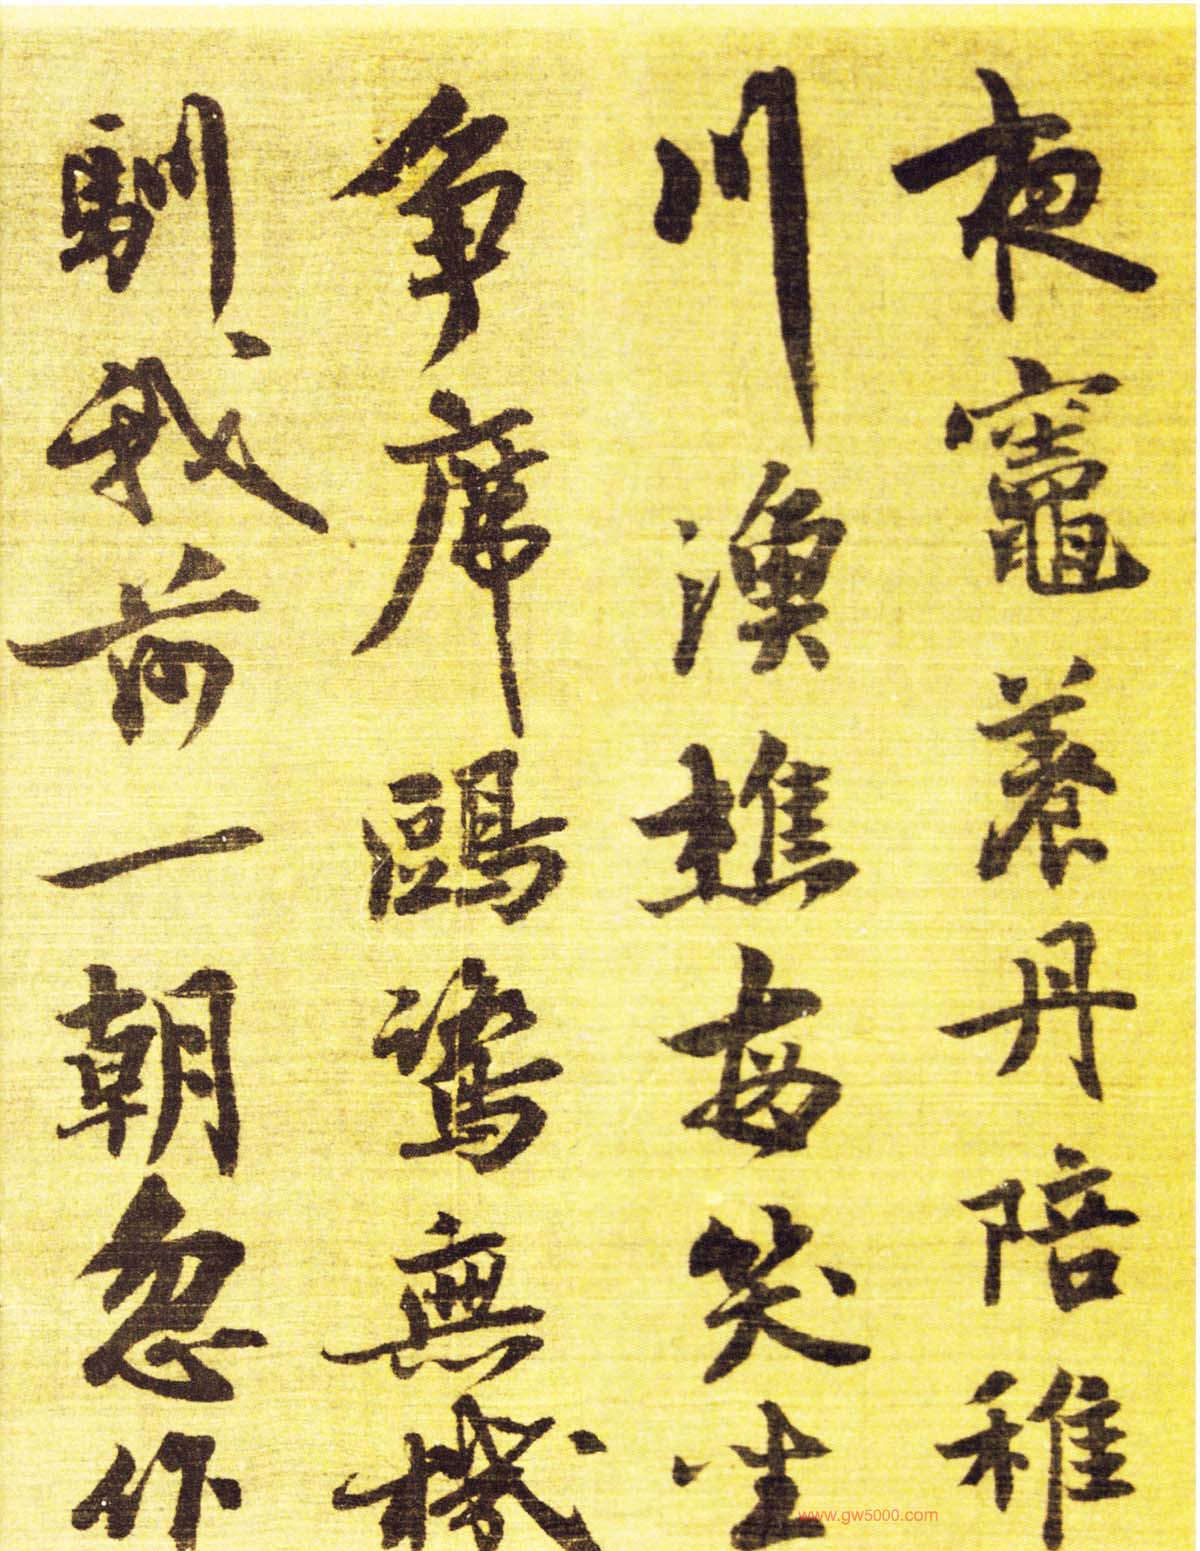 夜竈養丹陪稚
川漁樵每笑坐
爭席鷗鷺無機
馴我前一朝忽作
www.gw5000.com